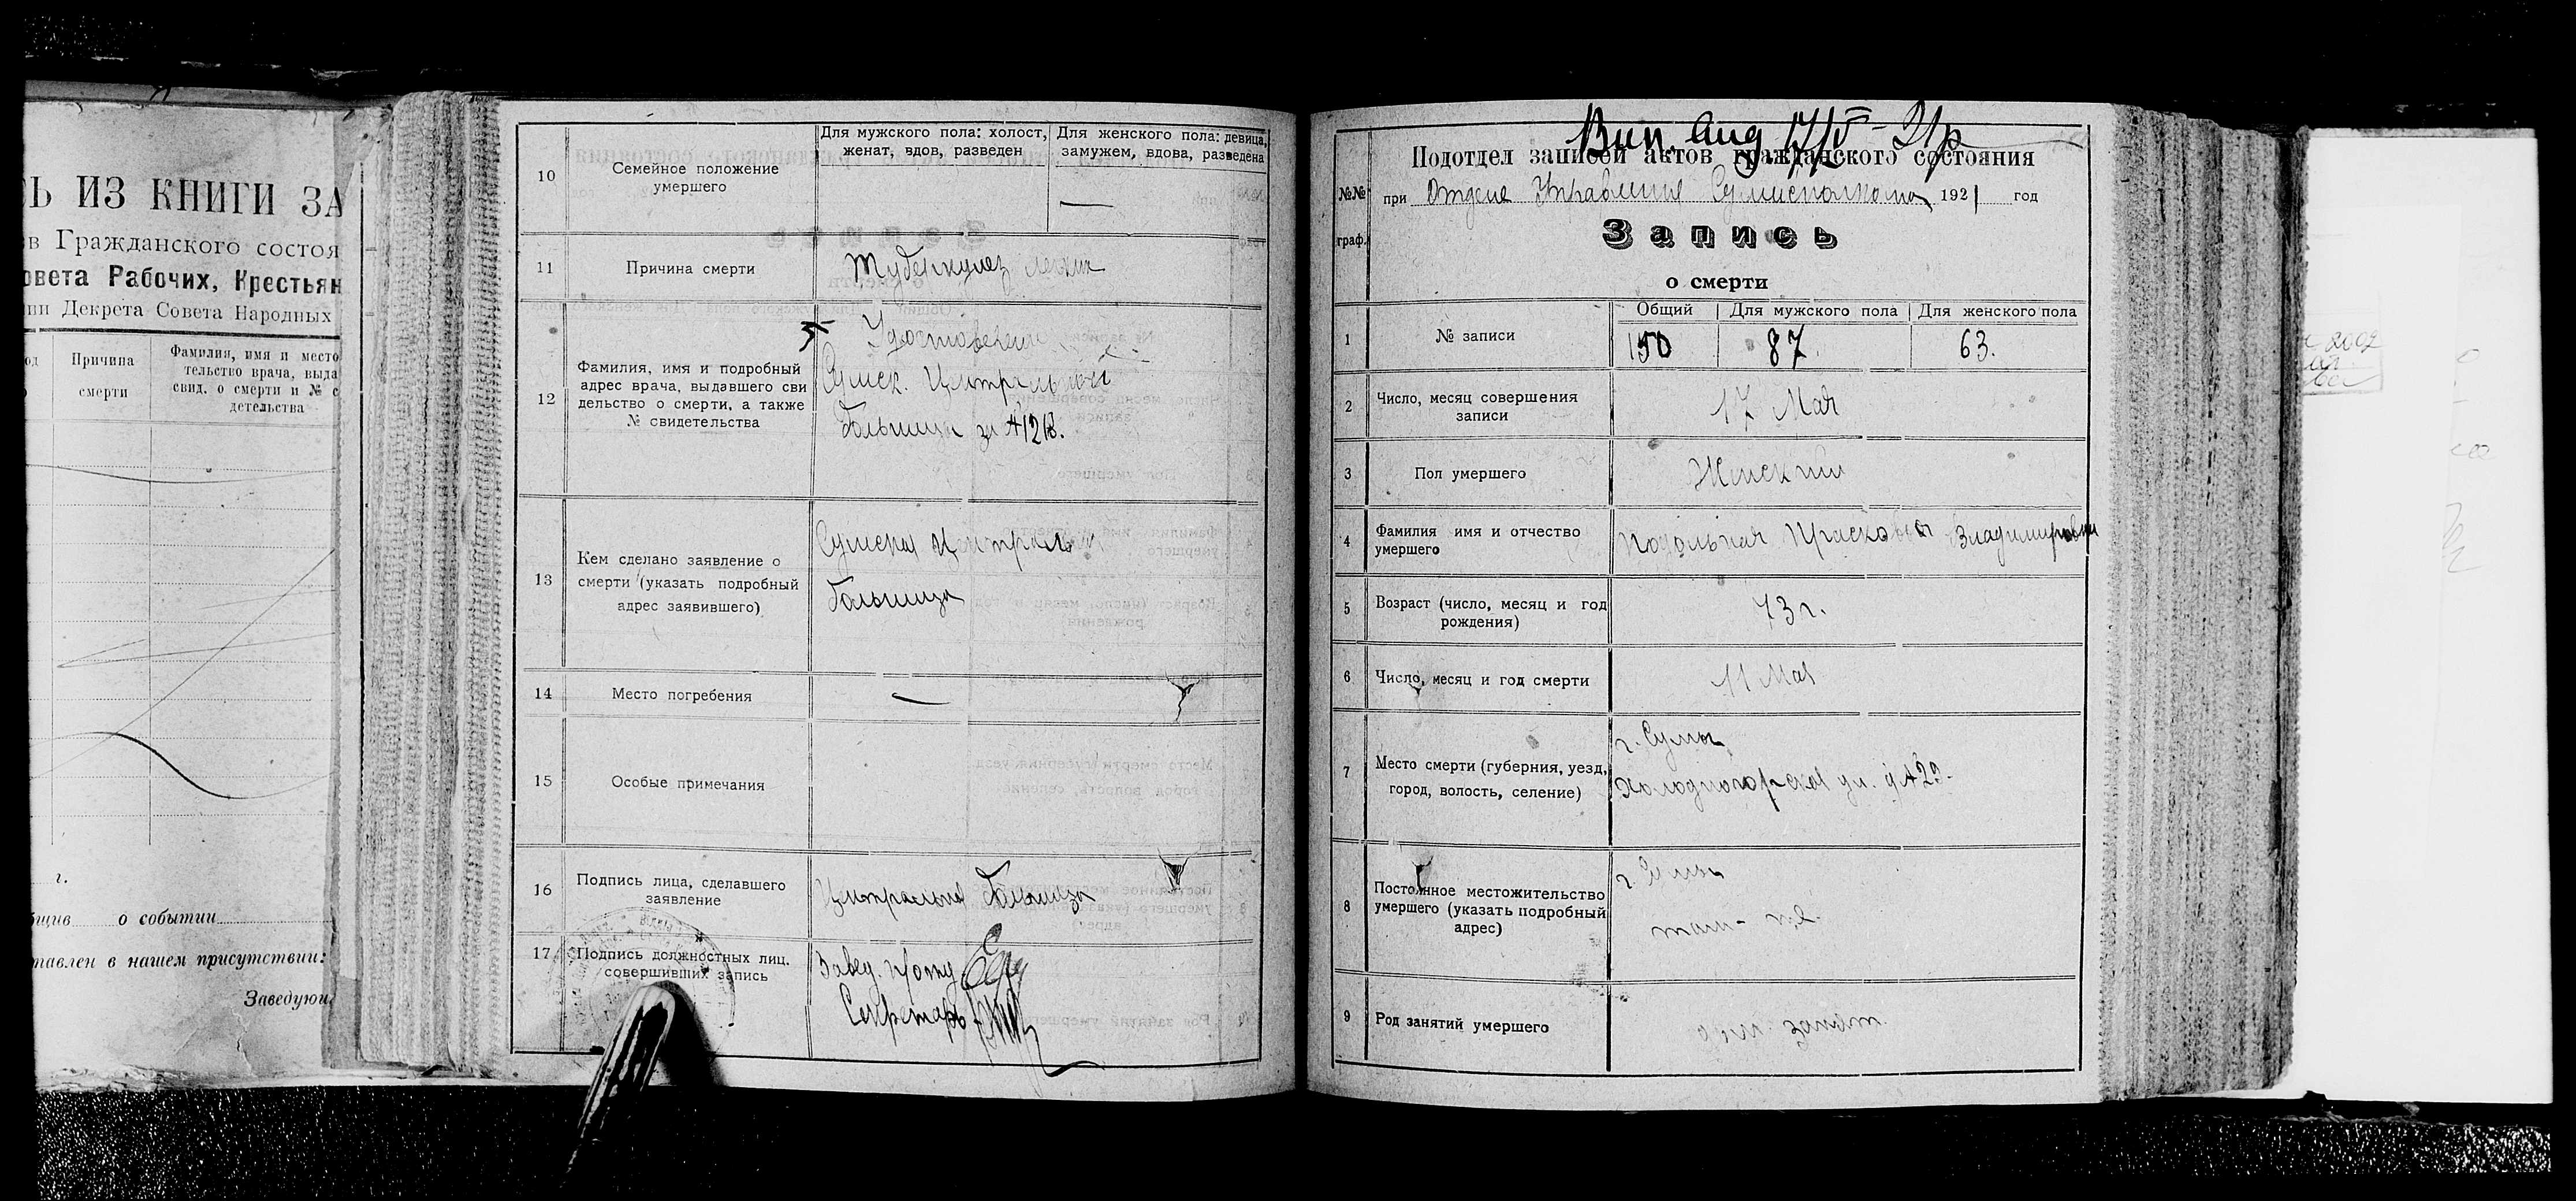 Ь ИЗ КНИГИ ЗА
в Гражданского состоя
овета Рабочих, Крестьян
ии Декрета Совета Народных
од
Причина
смерти
Фамилия, имя и место
тельство врача, выда
свид. о смерти и № с
детельства
г.
бщив о событии
тавлен в нашем присутствии:
Заведую
10
Семейное положение
умершего
Для мужского пола: холост,
женат, вдов, разведен
Для женского пола: девица,
замужем, вдова, разведена
—
11
Причина смерти
Туберкулез легких
12
Фамилия, имя и подробный
адрес врача, выдавшего сви
дельство о смерти, а также
№ свидетельства
Удостоверение
Сумск. Центральной
больницы за № 1218.
13
Кем сделано заявление о
смерти (указать подробный
адрес заявившего)
Сумская Центральная
больница
14
Место погребения
—
15
Особые примечания
16
Подпись лица, сделавшего
заявление
Центральная больница
17
Подпись должностных лиц.
совершивших запись
Завед.
Секретарь
21р
Подотдел записей актов гражданского состояния
№№
граф.
при Отделе Управления Сумисполкома 1921 год
Запись
о смерти
1
№ записи
Общий
Для мужского пола
Для женского пола
150
87.
63.
2
Число, месяц совершения
записи
17 Мая
3
Пол умершего
Женский
4
Фамилия имя и отчество
умершего
Подольная Прасковья Владимировна
5
Возраст (число, месяц и год
рождения)
73 г.
6
Число, месяц и год смерти
11 Мая
7
Место смерти (губерния, уезд,
город, волость, селение)
г. Сумы
Холодногорская ул. д № 23.
8
Постоянное местожительство
умершего (указать подробный
адрес)
г. Сумы
там-же
9
Род занятий умершего
занят.